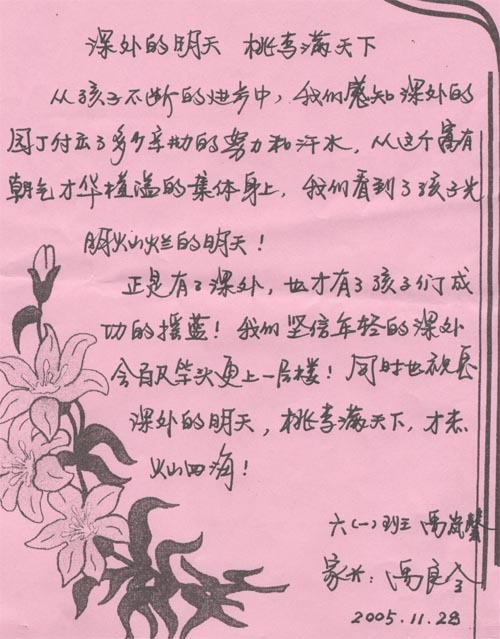 课外的明天 桃李满天下
从孩子不断的进步中，我们感知课外的
园丁付出了多少辛勤的努力和汗水，从这个富有
朝气才华横溢的集体身上，我们看到了孩子光
明灿烂的明天！
正是有了课外，也才有了孩子们成
功的摇篮！我们坚信年轻的课外
会百尺竿头更上一层楼！同时也祝愿
课外的明天，桃李满天下，才杰
灿四海！
六(一)班 禹岚馨
家长：禹良
2005.11.28